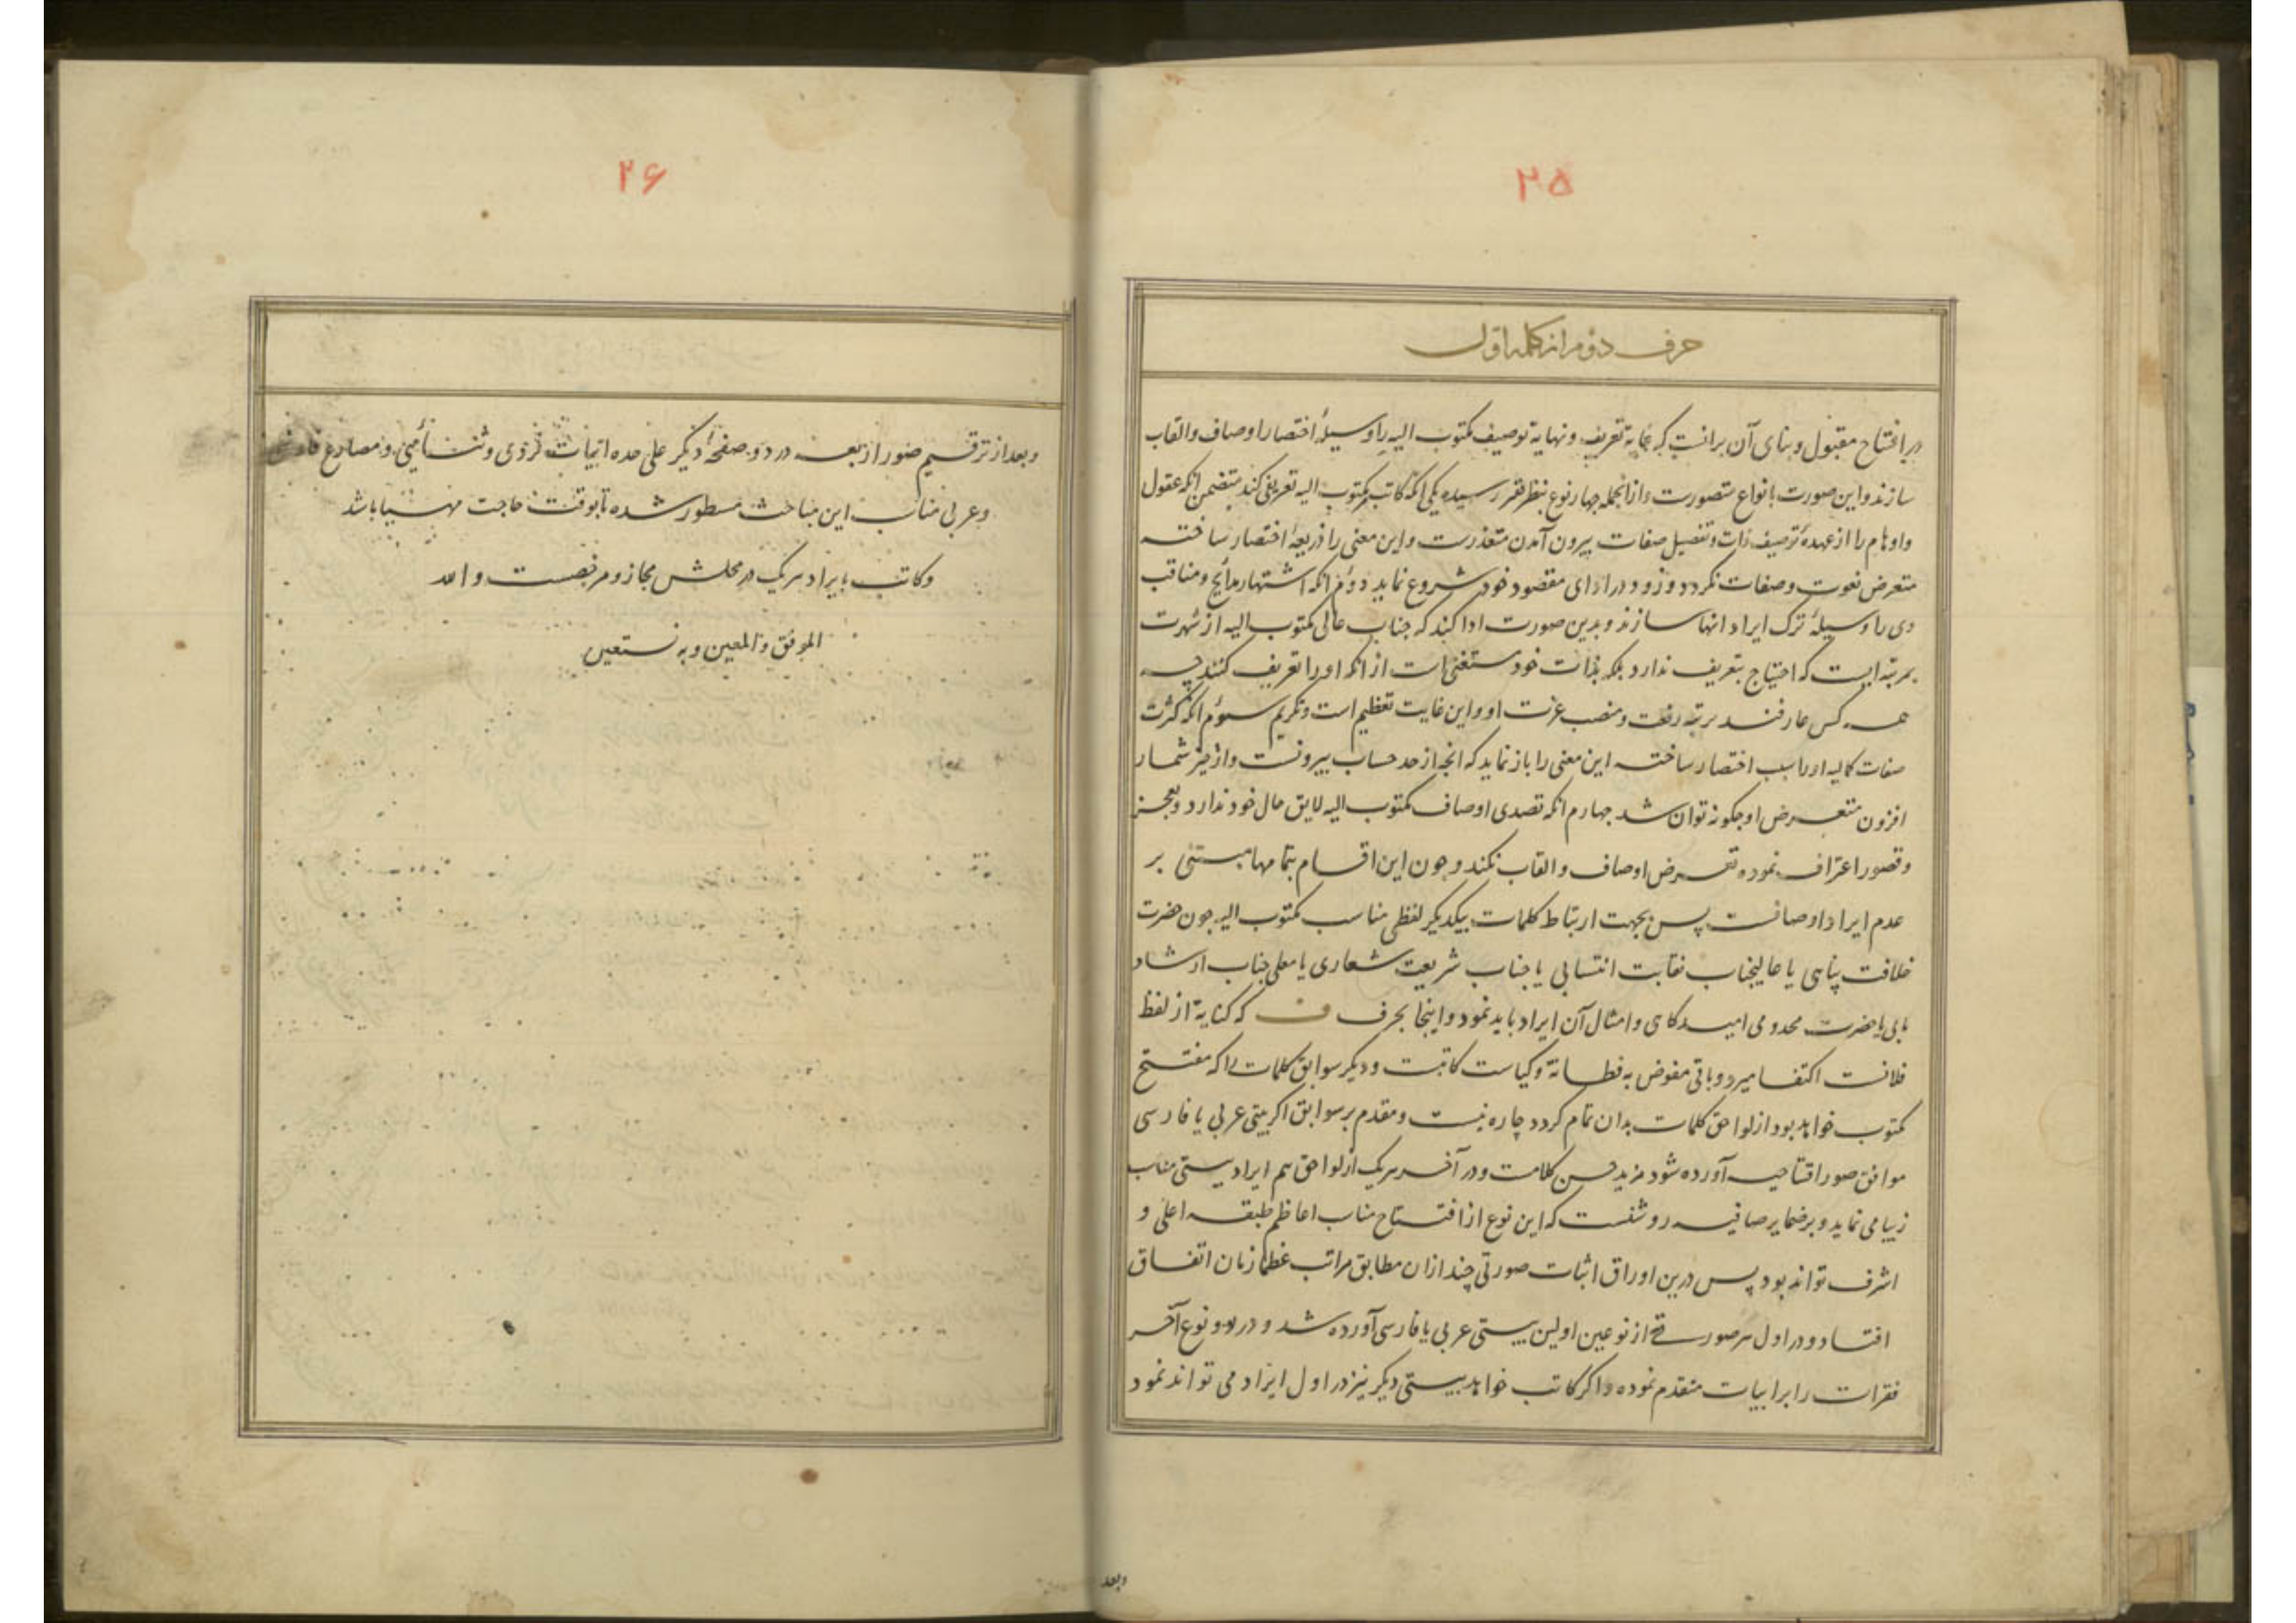 ۲۵
حرف دوم از کلمه اول
در افتتاح مقبول و بنای آن برانست که غایة تعریف و نهایة توصیف مکتوب الیه را وسیلهٔ اختصار اوصاف و القاب
سازند و این صورت بانواع متصورست و ازانجمله چهار نوع بنظر فقیر رسیده یکی انکه کاتب مر مکتوب الیه تعریفی کند متضمن انکه عقول
و اوهام را از عهدهٔ توصیف ذات و تفصیل صفات بیرون آمدن متعذرست و این معنی را ذریعهٔ اختصار ساخته
متعرض نعوت و صفات نکردد و زود در ادای مقصود خود شروع نماید دوم انکه اشتهار مدایح و مناقب
وی را وسیلهٔ ترک ایراد انها سازند و بدین صورت ادا کند که جناب عالی مکتوب الیه از شهرت
بمرتبه ایست که احتیاج بتعریف ندارد بلکه بذات خود مستغنی است از انکه او را تعریف کنند چه
همه کس عارفند برتبه رفعت و منصب عزت او و این غایت تعظیم است و تکریم سوم انکه کثرت
صفات کمالیه او را سبب اختصار ساخته این معنی را باز نماید که انچه از حد حساب بیرونست و از حیز شمار
افزون متعرض او چکونه توان شد چهارم انکه تصدی اوصاف مکتوب الیه لایق حال خود ندارد و بعجز
و قصور اعتراف نموده تعرض اوصاف و القاب نکند و چون این اقسام بتمامها مبتنی بر
عدم ایراد اوصافست پس بجهت ارتباط کلمات بیکدیکر لفظی مناسب مکتوب الیه چون حضرت
خلافت پناهی یا عالیجناب نقابت انتسابی یا جناب شریعت شعاری یا معلی جناب ارشاد
مابی یا حضرت مخدومی امیدکاهی و امثال آن ایراد باید نمود و اینجا بحرف ف که کنایة از لفظ
فلانست اکتفا میرود و باقی مفوض به فطانة و کیاست کاتبست و دیکر سوابق کلمات را که مفتتح
مکتوب خواهد بود از لواحق کلمات بدان تمام کردد چاره نیست و مقدم بر سوابق اکر بیتی عربی یا فارسی
موافق صور افتتاحیه آورده شود مزید حسن کلامست و در آخر هریک از لواحق هم ایراد بیتی مناسب
زیبا می نماید و بر ضمایر صافیه روشنست که این نوع از افتتاح مناسب اعاظم طبقه اعلی و
اشرف تواند بود پس درین اوراق اثبات صورتی چند ازان مطابق مراتب عظماء زمان اتفاق
افتاد و در اول هر صورتی از نوعین اولین بیتی عربی یا فارسی آورده شد و در دو نوع آخر
فقرات را بر ابیات متقدم نموده و اکر کاتب خواهد بیتی دیکر نیز در اول ایراد می تواند نمود
وبعد
۲۶
و بعد از ترقیم صور اربعه در دو صفحهٔ دیکر علی حده ابیات فردی و مثنی و مصارع فارسی
و عربی مناسب این مباحث مسطور شده تا بوقت حاجت مهیا باشد
و کاتب بایراد هریک در محلش مجاز و مرخصست و الله
الموفق و المعین و به نستعین